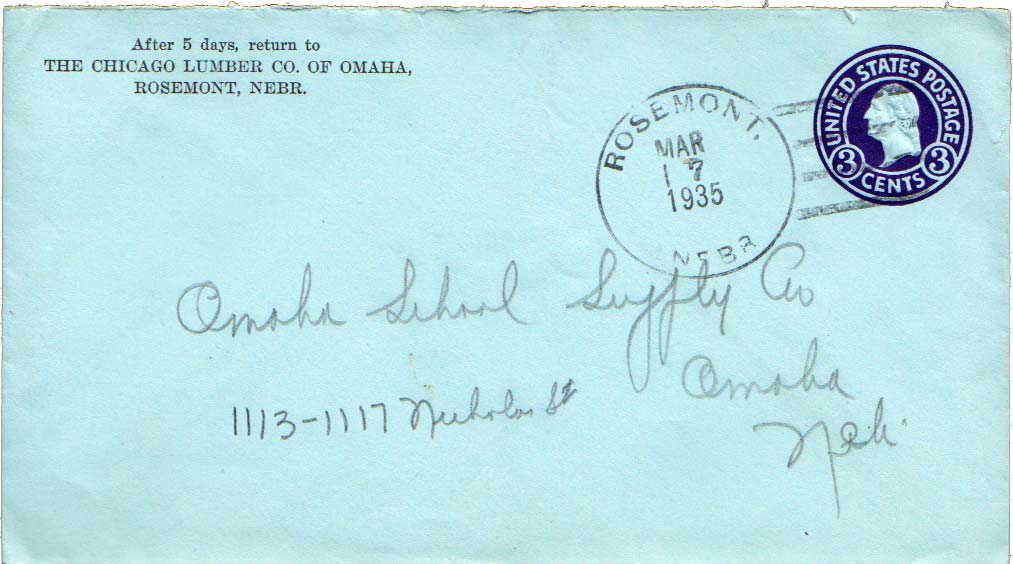 After 5 days, return to
THE CHICAGO LUMBER CO. OF OMAHA,
ROSEMONT, NEBR.
UNITED STATES POSTAGE
3 CENTS 3
ROSEMONT,
MAR
17
1935
NEBR
Omaha School Supply Co
Omaha
1113-1117 Nicholas St
Neb.